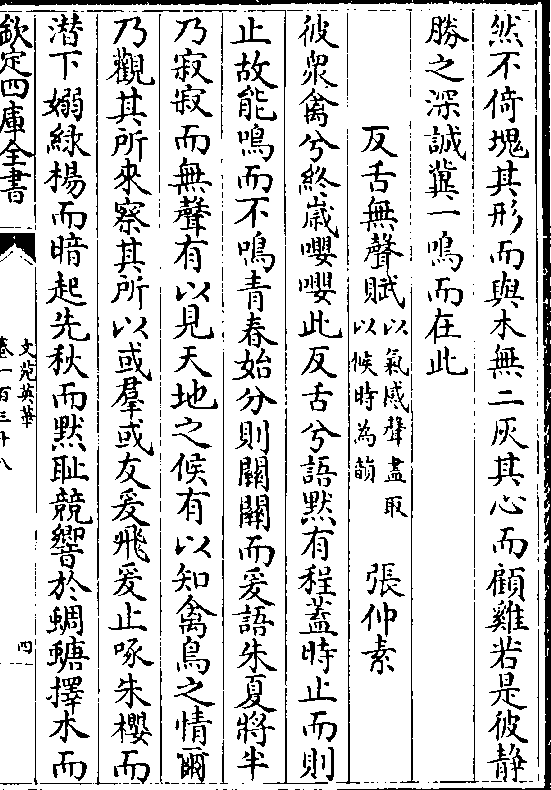 然不倚塊其形而與木無二灰其心而顧雞若是彼静
勝之深誠冀一鳴而在此
反舌無聲賦以氣感聲盡取以候時為韻 張仲素
彼衆禽兮終嵗嚶嚶此反舌兮語默有程蓋時止而則
止故能鳴而不鳴青春始分則關關而爰語朱夏將半
乃寂寂而無聲有以見天地之候有以知禽鳥之情爾
乃觀其所來察其所以或羣或友爰飛爰止啄朱櫻而
潜下嫋緑楊而暗起先秋而默耻競響於蜩螗擇木而
欽定四庫全書
文苑英華
卷一百三十八
四